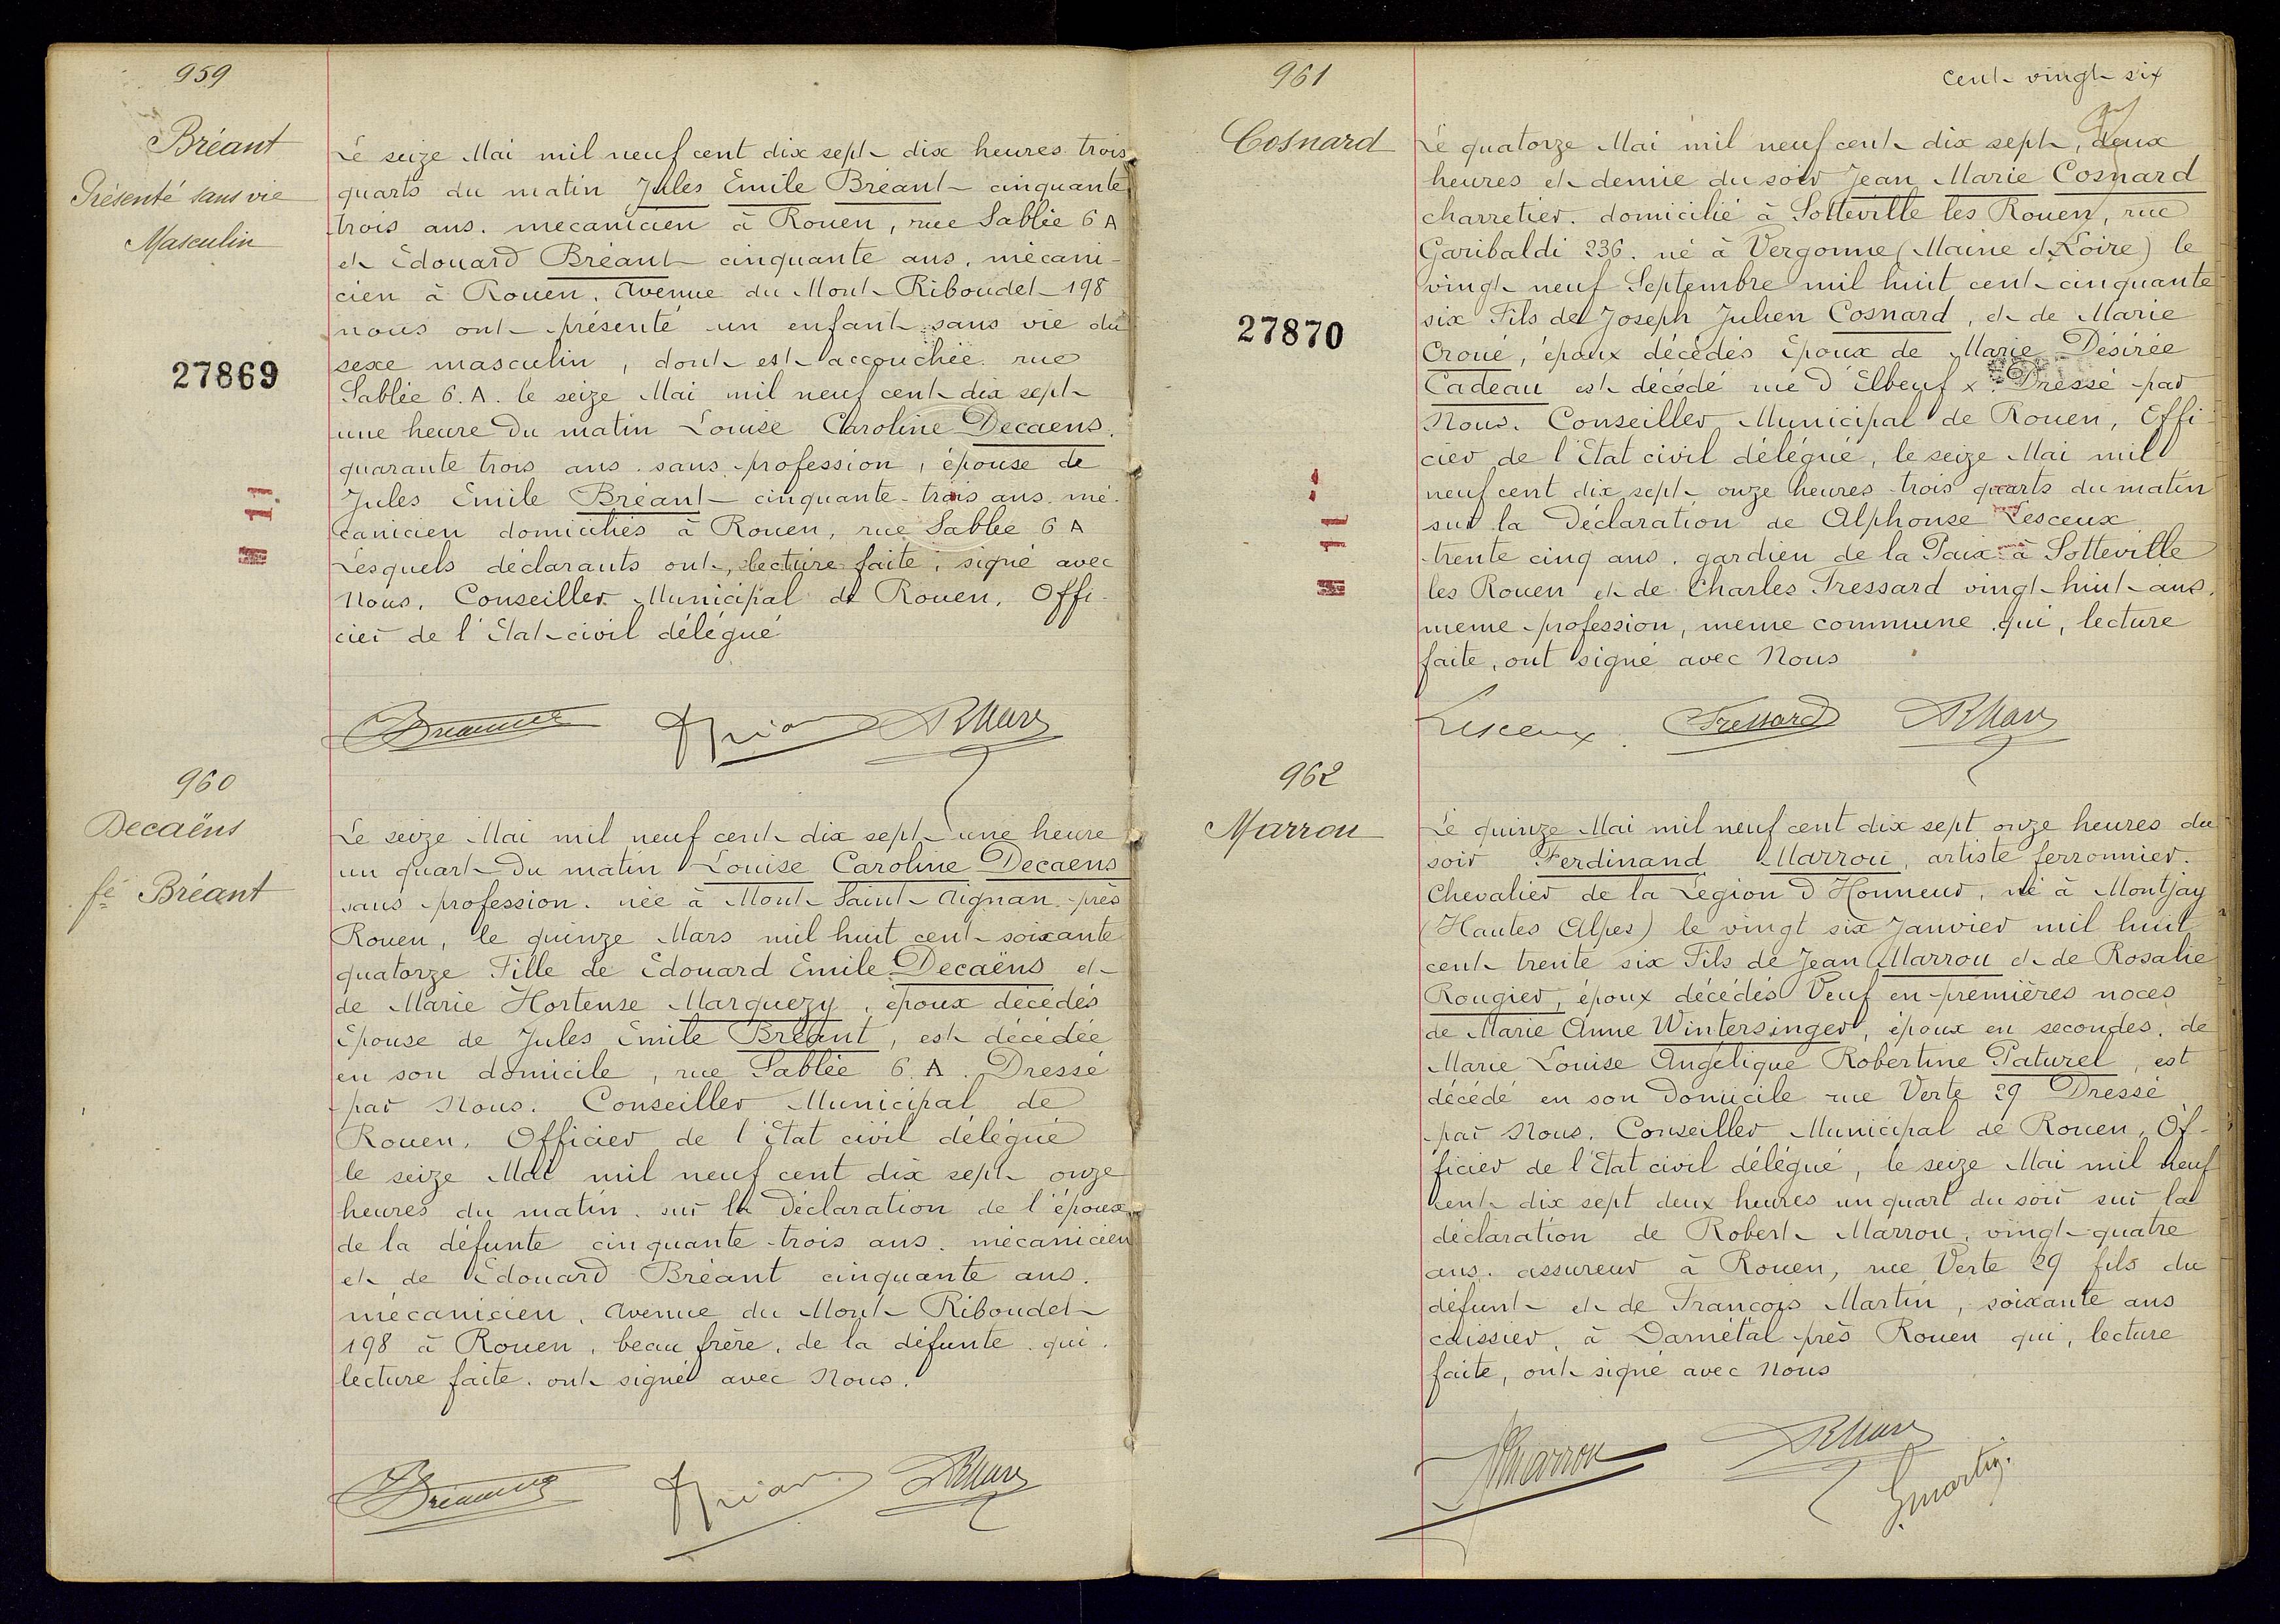 959
Bréant
Présenté sans vie
Masculin
27869
Le seize Mai mil neuf cent dix sept dix heures trois
quarts du matin Jules Emile Bréant cinquante
trois ans. mecanicien à Rouen, rue Sablée 6 A
et Edouard Bréant cinquante ans, mécani-
cien à Rouen, Avenue du Mont Riboudet 198
nous ont présenté un enfant sans vie du
sexe masculin, dont est accouchée rue
Sablée 6. A. le seize Mai mil neuf cent dix sept
une heure du matin Louise Caroline Decaens.
quarante trois ans. sans profession, épouse de
Jules Emile Bréant cinquante-trois ans. mé-
canicien domiciliés à Rouen, rue Sablée 6 A
Lesquels déclarants ont, lecture faite, signé avec
Nous, Conseiller Municipal de Rouen, Offi-
cier de l'Etat-civil délégué
960
Decaëns
fe Bréant
Le seize Mai mil neuf cent dix sept une heure
un quart du matin Louise Caroline Decaens
sans profession. née à Mont Saint Aignan près
Rouen, le quinze Mars mil huit cent soixante
quatorze Fille de Edouard Emile Decaëns et
de Marie Hortense Marquezy, époux décédés
Epouse de Jules Emile Bréant, est décédée
en son domicile, rue Sablée 6. A. Dressé
par Nous. Conseiller Municipal de
Rouen. Officier de l'Etat civil délégué
le seize Mai mil neuf cent dix sept onze
heures du matin. sur la Déclaration de l'époux
de la défunte cinquante-trois ans. mécanicien
et de Edouard Bréant cinquante ans.
mécanicien, Avenue du Mont Riboudet
198 à Rouen, beau frère, de la défunte. qui.
lecture faite. ont signé avec Nous.
961
cent vingt six
Cosnard
27870
Le quatorze Mai mil neuf cent dix sept, deux
heures et demie du soir Jean Marie Cosnard
charretier. domicilié à Sotteville les Rouen, rue
Garibaldi 236. né à Vergonne (Maine et Loire) le
vingt neuf Septembre mil huit cent cinquante
six Fils de Joseph Julien Cosnard, et de Marie
Croué, époux décédés Epoux de Marie Désirée
Cadeau est décédé rue D'Elbeuf x. Dressé par
Nous. Conseiller Municipal de Rouen, Offi-
cier de l'Etat civil délégué, le seize Mai mil
neuf cent dix sept onze heures trois quarts du matin
sur la Déclaration de Alphonse Lesceux
trente cinq ans. gardien de la Paix à Sotteville
les Rouen et de Charles Fressard vingt-huit-ans,
meme profession, meme commune. qui, lecture
faite, ont signé avec Nous
Lesceux Fressard
962
Marrou
Le quinze Mai mil neuf cent dix sept onze heures du
soir Ferdinand Marrou, artiste ferronnier.
Chevalier de la Legion d'Honneur, né à Montjay
(Hautes Alpes) le vingt six Janvier mil huit
cent trente six Fils de Jean Marrou et de Rosalie
Rougier, époux décédés Veuf en premières noces
de Marie Anne Wintersinger, époux en secondes. de
Marie Louise Angélique Robertine Paturel, est
décédé en son Domicile rue Verte 29 Dressé
par Nous. Conseiller Municipal de Rouen, Of-
ficier de l'Etat civil délégué, le seize Mai mil neuf
cent dix sept deux heures un quart du soir sur la
déclaration de Robert Marrou, vingt-quatre
ans. assureur à Rouen, rue Verte 29 fils du
défunt et de François Martin, soixante ans
caissier, à Darnétal près Rouen qui, lecture
faite, ont signé avec Nous
Marrou